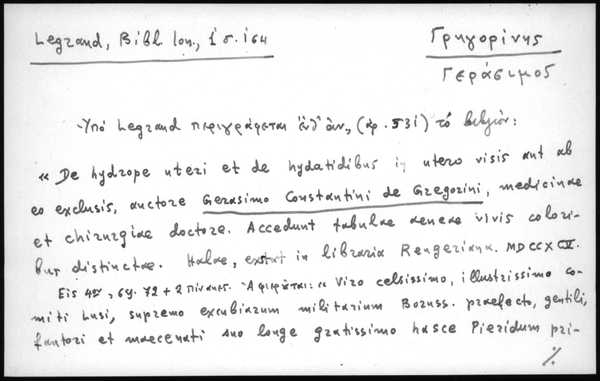 Legrand, Bibl. Ion., 1 σ. 164
Γρηγορίνης
Γεράσιμος
Ὑπό Legrand περιγράφεται (ἀρ. 531) τό βιβλίον:
« De hydrope uteri et de hydatidibus in utero visis aut ab
eo exclusis, auctore Gerasimo Constantini de Gregorini, medicinae
et chirurgiae doctore. Accedunt tabulae aeneae vivis colori-
bus distinctae. Halae, exstat in libraria Rengeriana. MDCCXCV.
Εἰς 4ον, σσ. 72 + 2 πίνακες. Ἀφιερῶται: « Viro celsissimo, illustrissimo co-
miti Lusi, supremo excubiarum militarium Boruss. praefecto, gentili,
fautori et maecenati suo longe gratissimo hasce Pieridum pri-
%